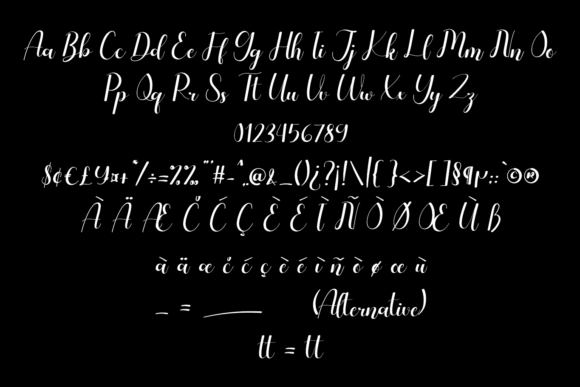 Aa Bb Cc Dd Ee Ff Gg Hh Ii Jj Kk Ll Mm Nn Oo
Pp Qq Rr Ss Tt Uu Vv Ww Xx Yy Zz
0123456789
$¢€£¥¤+*/÷=%‰"'#-^~@&_()¿?¡!\|{}<>[]§¶µ::`©®
À Ä Æ Č Ć Ç È É Ì Ñ Ò Ø Œ Ù ß
à ä æ č ć ç è é ì ñ ò ø œ ù
_ = ____ (Alternative)
tt = tt